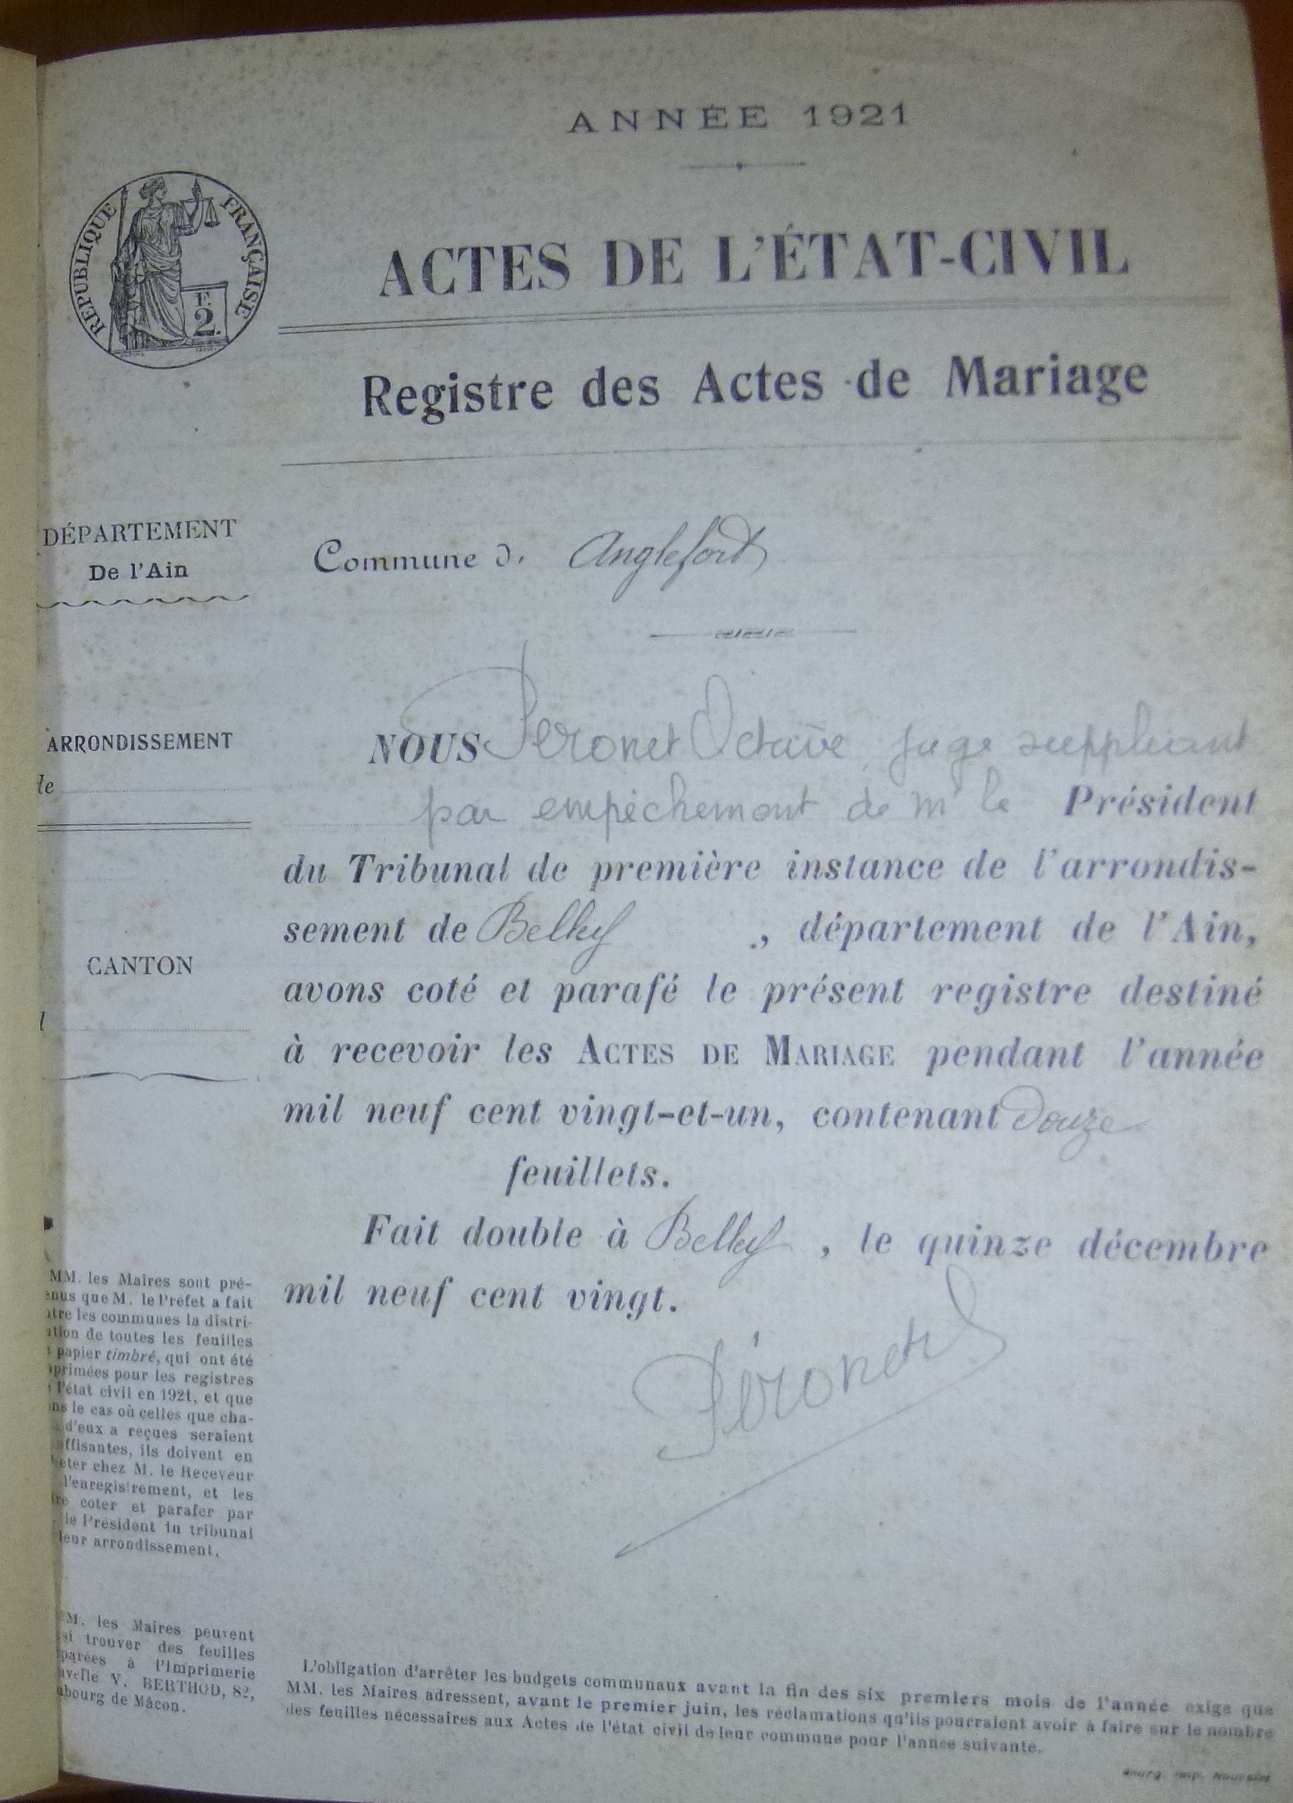 ANNÉE 1921
RÉPUBLIQUE FRANÇAISE
F.
2.
ACTES DE L'ÉTAT-CIVIL
Registre des Actes de Mariage
DÉPARTEMENT
De l'Ain
Commune d. Anglefort
ARRONDISSEMENT
de
CANTON
NOUS Péronet Octave, juge suppléant
par empêchement de Mr le Président
du Tribunal de première instance de l'arrondis-
sement de Belley, département de l'Ain,
avons coté et parafé le présent registre destiné
à recevoir les ACTES DE MARIAGE pendant l'année
mil neuf cent vingt-et-un, contenant douze
feuillets.
Fait double à Belley, le quinze décembre
mil neuf cent vingt.
Péronet
MM. les Maires sont pré-
enus que M. le Préfet a fait
tre les communes la distri-
tion de toutes les feuilles
papier timbré, qui ont été
primées pour les registres
l'état civil en 1921, et que
ns le cas où celles que cha-
d'eux a reçues seraient
uffisantes, ils doivent en
eter chez M. le Receveur
l'enregistrement, et les
re coter et parafer par
le Président du tribunal
leur arrondissement.
M. les Maires peuvent
si trouver des feuilles
parées à l'Imprimerie
uvelle V. BERTHOD, 82,
ubourg de Mâcon.
L'obligation d'arrêter les budgets communaux avant la fin des six premiers mois de l'année exige que
MM. les Maires adressent, avant le premier juin, les réclamations qu'ils pourraient avoir à faire sur le nombre
des feuilles nécessaires aux Actes de l'état civil de leur commune pour l'année suivante.
Bourg. Imp. Nouvelle